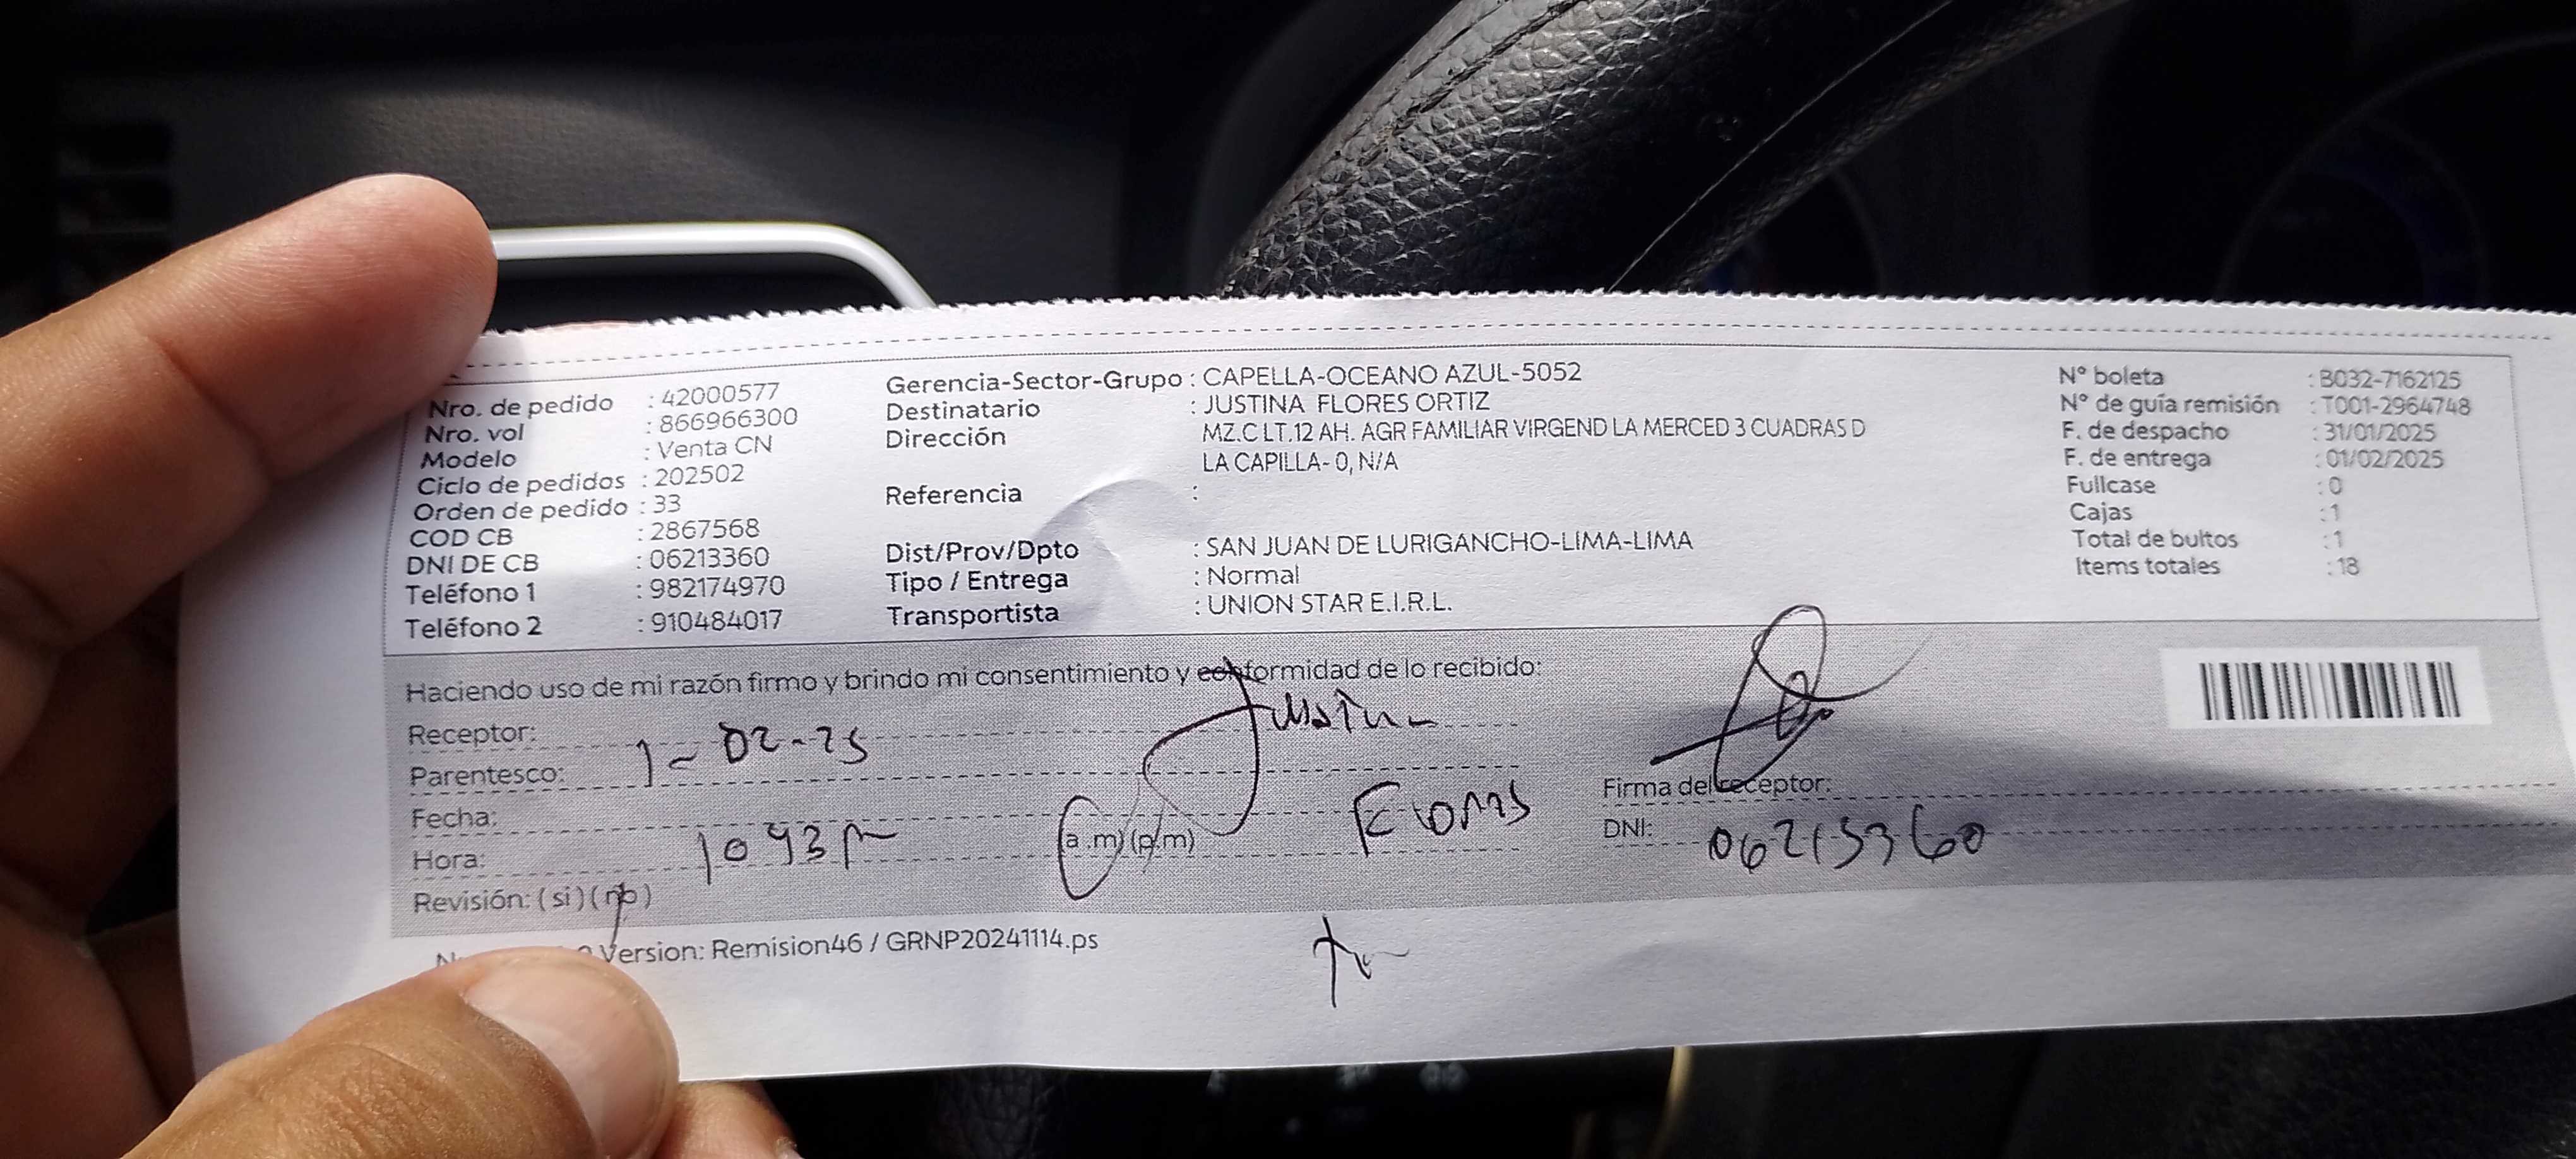 Nro. de pedido : 42000577
Nro. vol : 866966300
Modelo : Venta CN
Ciclo de pedidos : 202502
Orden de pedido : 33
COD CB : 2867568
DNI DE CB : 06213360
Teléfono 1 : 982174970
Teléfono 2 : 910484017
Gerencia-Sector-Grupo : CAPELLA-OCEANO AZUL-5052
Destinatario : JUSTINA FLORES ORTIZ
Dirección MZ.C LT.12 AH. AGR FAMILIAR VIRGEND LA MERCED 3 CUADRAS D
LA CAPILLA- 0, N/A
Referencia :
Dist/Prov/Dpto : SAN JUAN DE LURIGANCHO-LIMA-LIMA
Tipo / Entrega : Normal
Transportista : UNION STAR E.I.R.L.
N° boleta : B032-7162125
N° de guía remisión : T001-2964748
F. de despacho : 31/01/2025
F. de entrega : 01/02/2025
Fullcase : 0
Cajas : 1
Total de bultos : 1
Items totales : 18
Haciendo uso de mi razón firmo y brindo mi consentimiento y conformidad de lo recibido:
Receptor: Justina
Parentesco: 1-02-25
Fecha: Flores
Hora: 1043 (a.m)(p.m)
Revisión: (si)(no)
Firma del receptor:
DNI: 06213360
Version: Remision46 / GRNP20241114.ps